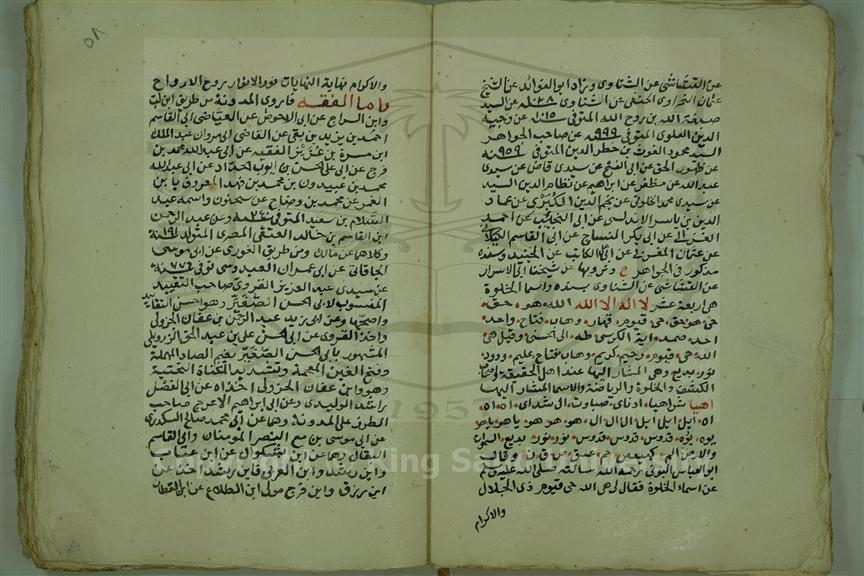 عن القشاشي عن الشناوي وزاد ابو الفوائد عن الشيخ
عثمان النحراوي الحنفي عن الشناوي عن السيد
صبغة الله بن روح الله المتوفى سنة ١٠١٥ عن وجيه
الدين العلوي المتوفى ٩٩٩ عن صاحب الجواهر
السيد محمود الغوث بن خطر الدين المتوفى سنة ٩٥٩
عن ظهور الحق عن ابي الفتح عن سيدي قاض عن سيدي
عبد الله عن مظفر عن ابراهيم عن نظام الدين السيد
عن سيدي محمد الخلوتي عن نجم الدين الكبرى عن عماد
الدين بن ياسر الاندلسي عن ابي النجيب عن احمد
الغزالي عن ابي بكر النساج عن ابي القاسم
عن عثمان المغربي عن ابي الكاتب عن الجنيد وسنده
مذكور في الجواهر ح ونرويها عن شيخنا ابي الاسرار
عن القشاشي عن الشناوي بسنده واسما الخلوة
هي اربعة عشر لا اله الا الله الله هو حق
حي هو حق حي قيوم قهار وهاب فتاح واحد
احد صمد اية الكرسي طه الى الحسنى وقيل هي
الله حي قيوم رحيم كريم وهاب فتاح عليم ودود
نور بديع وهي المشار اليها عند اهل الحقيقة
الكشف والخلوة والرياضة والاسما المشار اليها
اهيا شراهيا ادناي صباوت ال شداي اه اه
اه ايل ايل ايل ال ال ال هو هو هو ياهو ياهو
يوه يوه قدوس قدوس قدوس نور نور بديع السموات
والارض الم كهيعص حم عسق ص ق ن وقال
ابو العباس البوني رحمه الله سالته صلى الله عليه وسلم
عن اسماء الخلوة فقال لي هي الله حي قيوم ذي الجلال
والاكرام
٥٨
والاكرام نهاية النهايات نور الانوار روح الارواح
واما الفقه فاروي المدونة من طريق ابن
وابن السراج عن ابي الاحوص عن الغياضي عن ابي القاسم
احمد بن يزيد بن بقي عن القاضي ابي مروان عبد الملك
ابن مسرة بن عزيز الفقيه عن ابي عبد الله محمد بن
فرج عن ابي علي الحسن بن ايوب الحداد عن ابي عبد الله
محمد بن عبيدون بن محمد بن فهد المعروف بابن
عن محمد بن وضاح عن سحنون واسمه عبد
السلام بن سعيد المتوفى سنة ٢٤٠ وعن عبد الرحمن
ابن القاسم بن خالد العتقي المصري المتوفى سنة ١٩١
وكلاهما عن مالك ومن طريق الغوري عن ابي موسى
الجاناتي عن ابي عمران العبدوسي توفي سنة ٧٧٦
عن سيدي عبد العزيز القروي صاحب التقييد
المنسوب لابي الحسن الصغير وهو احسن التقاييد
واصحها وعن ابي زيد عبد الرحمن بن عفان الجزولي
واخذ القروي عن ابي الحسن علي بن عبد الحق الزرويلي
المشهور بابي الحسن الصغير بضم الصاد المهملة
وفتح الغين المعجمة وتشديد المثناة التحتية
وهو وابن عفان الجزولي اخذاه عن ابي الفضل
راشد الوليدي وعن ابي ابراهيم الاعرج صاحب
الطرر على المدونة وهما عن ابي محمد صالح السكدري
عن ابي موسى بن مع النصر المومناني وابي القاسم
البقال وهما عن ابن بشكوال عن ابن عتاب
وابن رشد وابن العربي فابن رشد اخذ عن
ابن رزق وابن فرج مولى ابن الطلاع عن ابن القطان
1957
King Sa